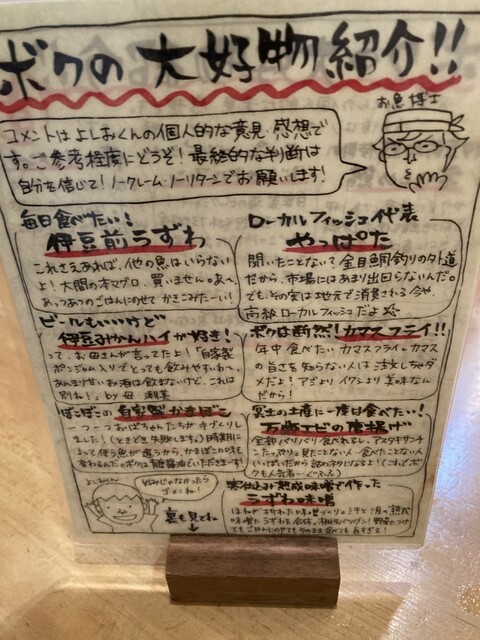 ボクの大好物紹介!!
お魚博士
コメントはよしおくんの個人的な意見・感想で
す。ご参考程度にどうぞ！最終的な判断は
自分を信じて！ノークレーム・ノーリターンでお願いします！
毎日食べたい！
伊豆前うずわ
これさえあれば、他の魚はいらない
よ！大間の本マグロ、買いません。あ〜、
あっつあつのごはんにのせてかきこみた〜い！
ローカルフィッシュ代表
やっぱた
聞いたことない？金目鯛釣りの外道
だから、市場にはあまり出回らないんだ。
でも、その実は地元で消費される今や、
高級ローカルフィッシュだよ
ビールもいいけど
伊豆みかんハイが好き！
って、お母さんが言ってたよ！「自家製
ポンジュース入りでとっても飲みやすいわ〜。
あんまり甘いお酒は飲まないけど、これは
別ね！」by 母
ボクは断然！カマスフライ!!
年中食べたいカマスフライ。カマス
の旨さを知らない人は注文しちゃダ
メだよ？アジより、イワシより美味なん
だから！
ぽこぽこの自家製かまぼこ
一つ一つおばちゃんたちが手づくりし
ました！（ときどき失敗します。）時期に
よって使う魚が違うから、かまぼこの味も
変わるんだ。ボクは糖醤油でいただきまーす！
冥土の土産に一度は食べたい！
万部エビの唐揚げ
全部バリバリ食べれるし、アスタキサンチ
ンたっぷり。見たことない人・食べたことない人
いっぱいだから話のネタになるよ！
よしおくん
好みじゃなかったら
ゴメンね！
裏も見てね
寒仕込み熟成味噌で作った
うずわ味噌